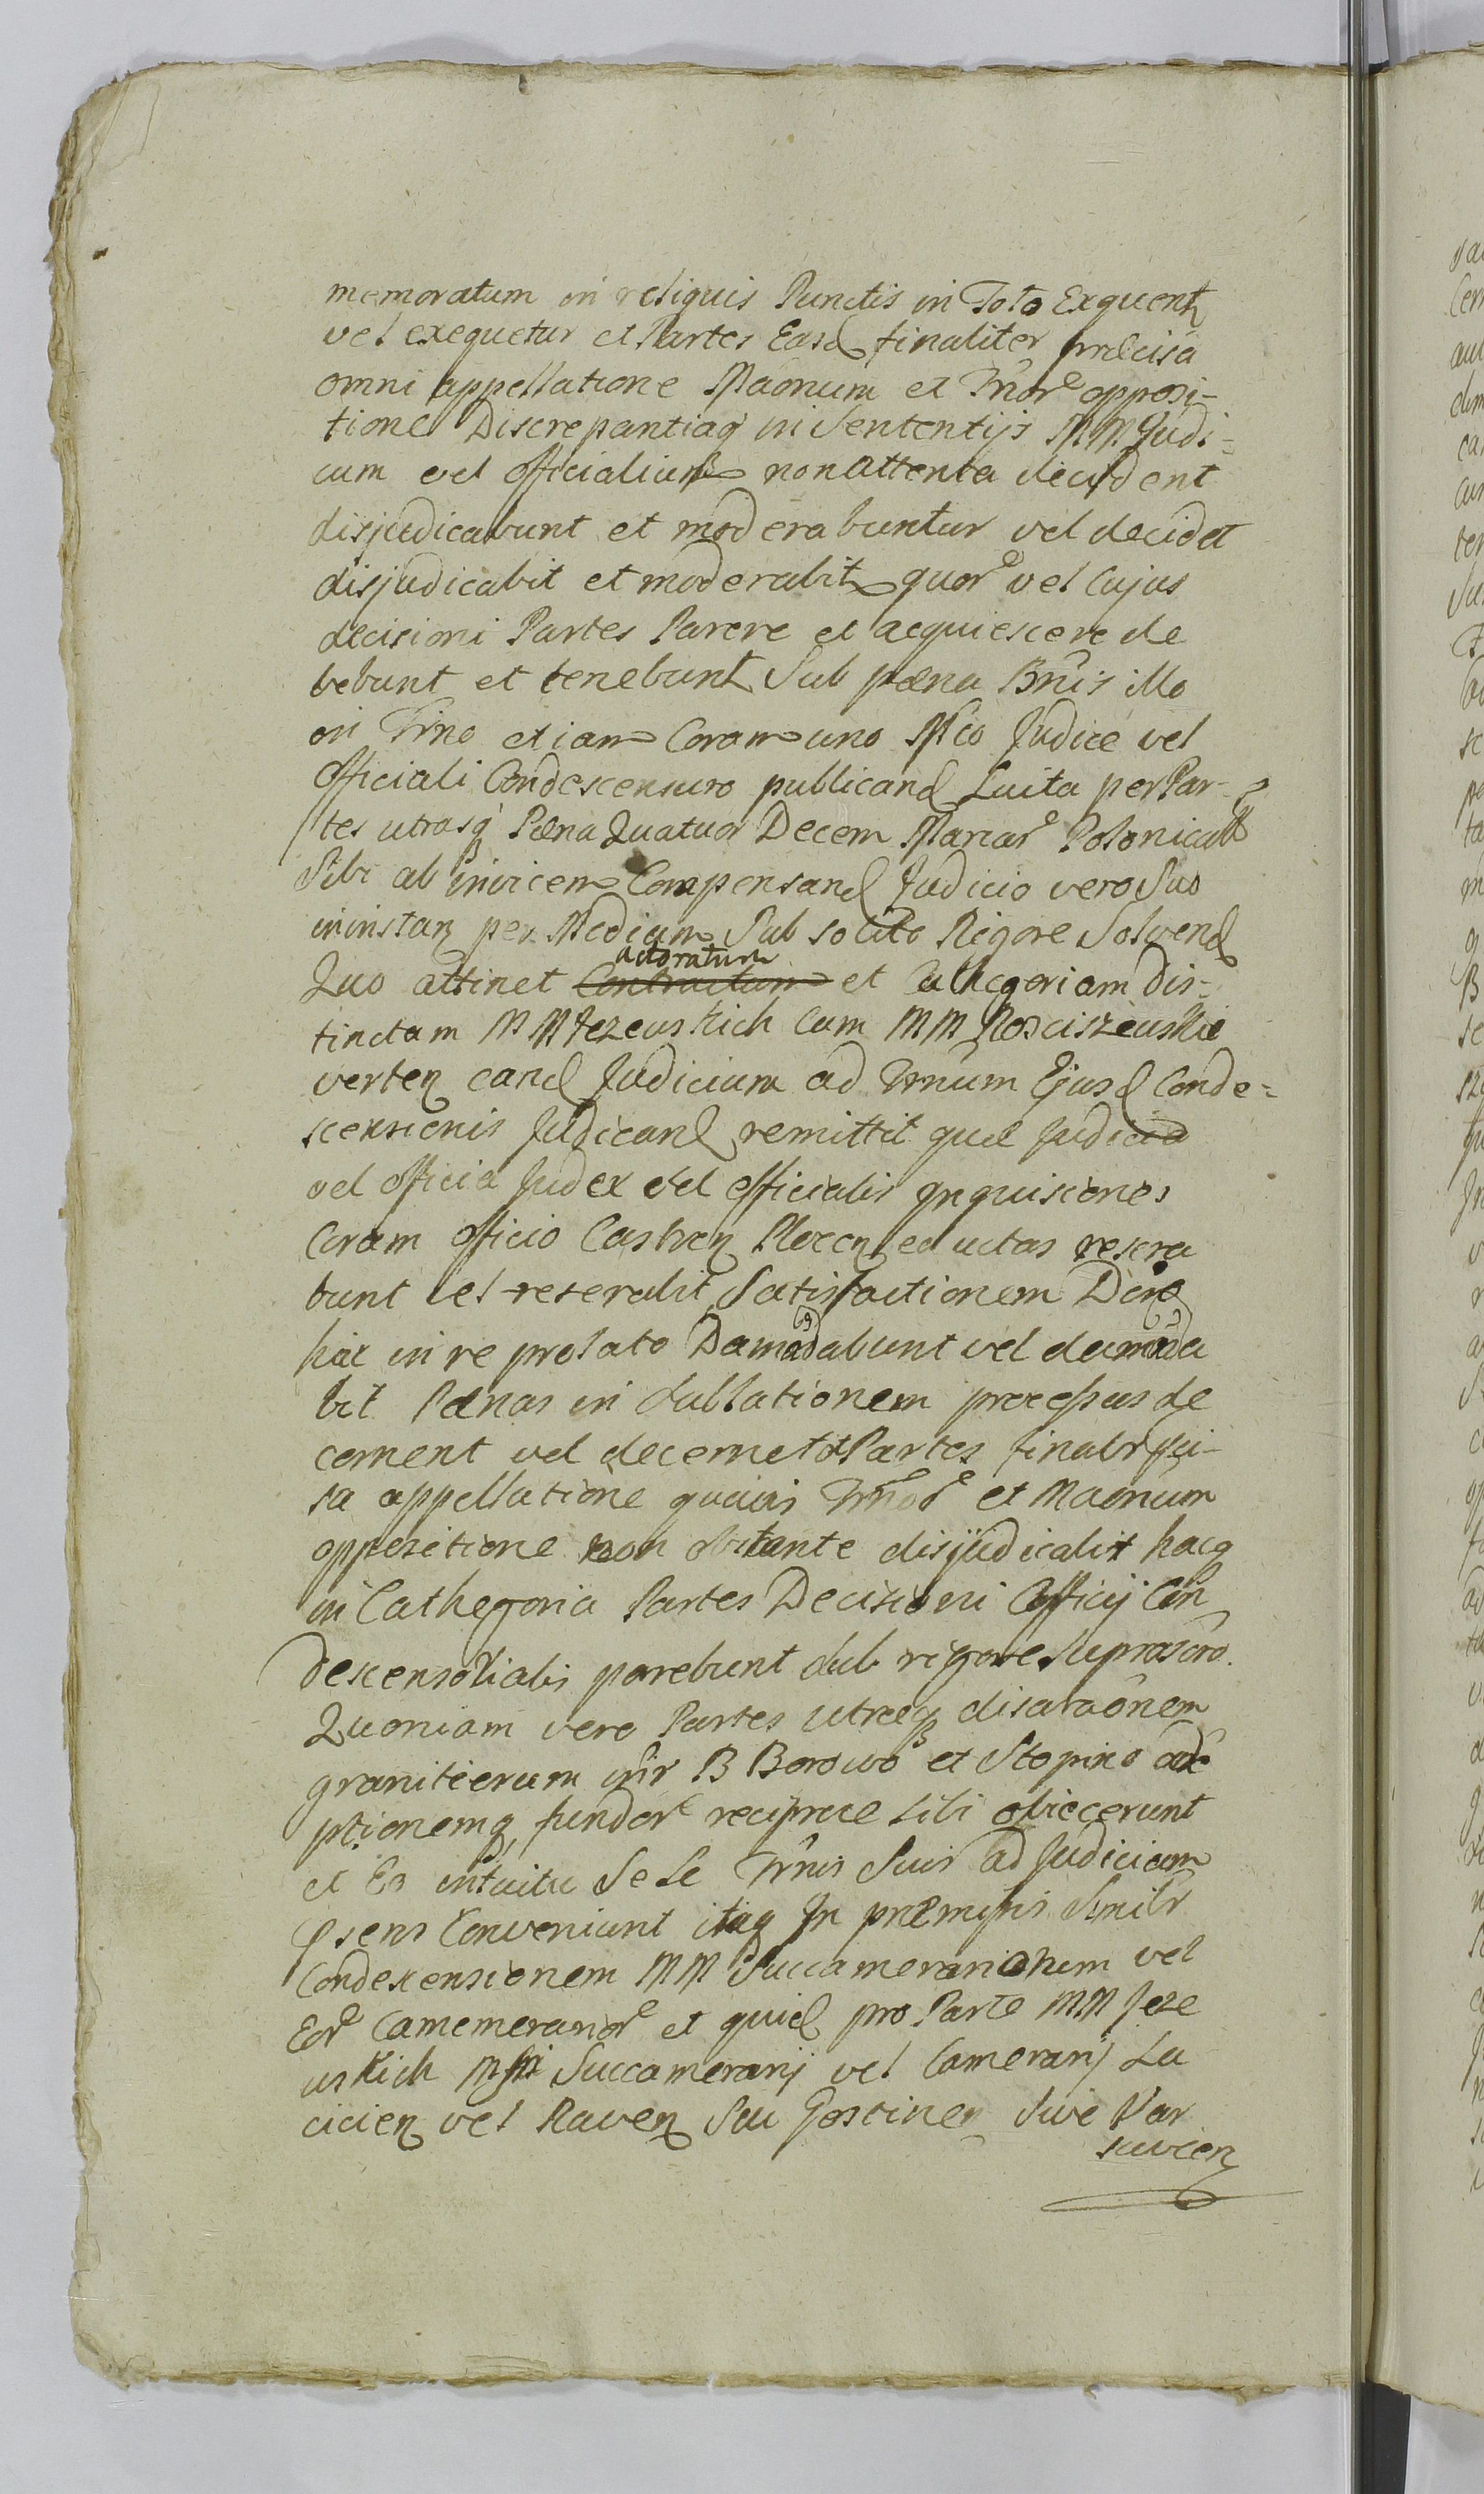 memoratum in reliquis Punctis in Toto Exquent
vel exequetur et Partes Easd finaliter præcisa
omni appellatione Maonum et Tnor opposi-
tione Discrepantiaq in Sententijs MM Judi-
cum vel officialium non attenta decident
disjudicabunt et moderabuntur vel decidet
disjudicabit et moderabit quor vel Cujus
decisioni Partes Parere et acquiescere de
bebunt et tenebunt Sub pæna Bnis illo
in Trno etiam Coram uno Mco Judice vel
Officiali Condescensuro publicand Luita per Par-
tes utrasq Pæna Quatuor Decem Marcar Polonicall
Sibi ab invicem Compensand Judicio vero Suo
in instan per Mediam Sub solito Rigore Solvend
Quo attinet Contractum actoratum et Cathegoriam dis-
tinctam MM Jezewskich Cum MM Rosciszewskie
verten eand Judicium ad Trnum Ejusd Conde-
scensionis Judicand remittit quæ Judicia
vel officia Judex vel officialis Inquisiones
Coram officio Castren Plocen eductas resera
bunt vel reserabit Satisfactionem
hac in re prolato abunt vel
bit Pænas in Sublationem processus de
cernent vel decernet et Partes finalr
sa appellatione quavis Trnor et Maonum
oppositione non obstante disjudicabit hacq
in Cathegoria Partes Decisioni Officij Con
descensorialis parebunt sub rigore suprascro.
Quoniam vero Partes utræq
granitierum intr B Borowo et Stopino
ptionemq fundor reciproce sibi obiecerunt
et Eo intuitu Se Se Trnis Suis ad Judicium
psens Conveniunt itaq In præmissis Similr
Condescensionem MM Succamerariorum vel
Eor Camemerarior et quid pro Parte MM Jeze
wskich Succamerarij vel Camerarij La
cicien vel Raven Seu Gostinen Sive Var
savien